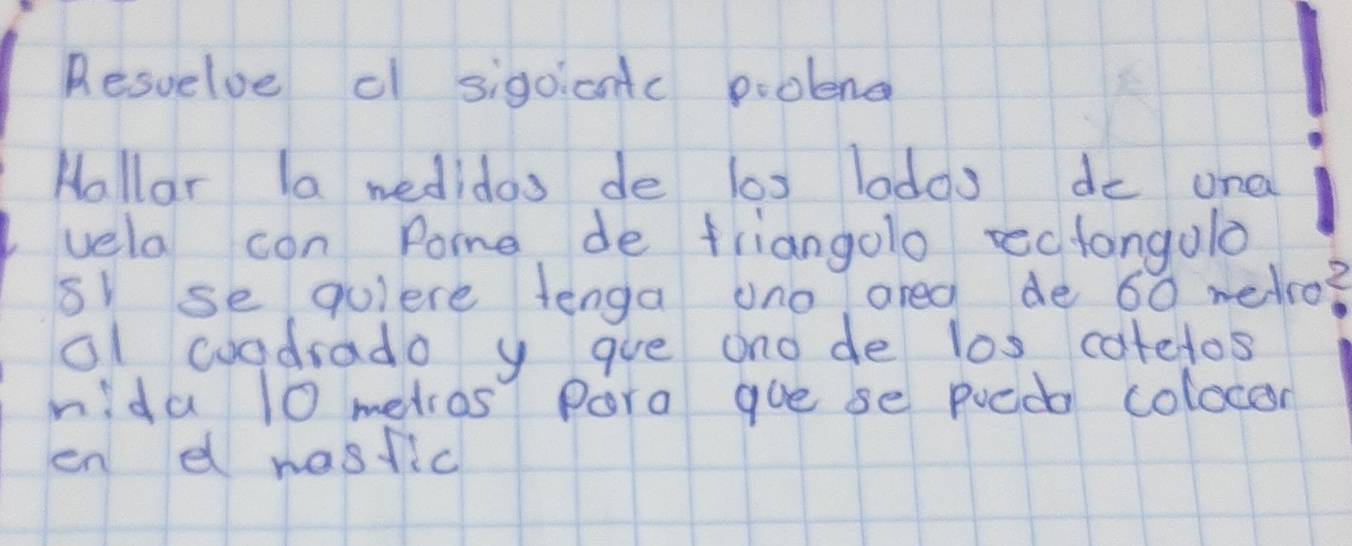 Resuelve el siguiente problema
Hallar la medidas de los lados de una
vela con Forma de triangulo rectangulo
si se quiere tenga una area de 60 metro²
al cuadrado y que uno de los catetos
mida 10 metros para que se pueda colocar
en el mastic